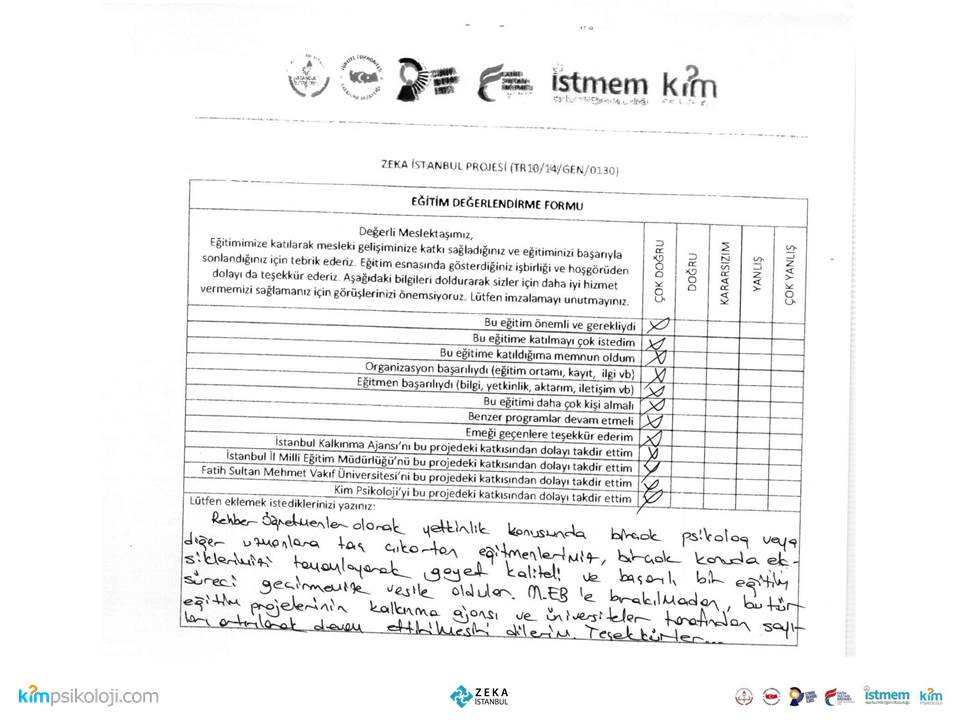 istmem kim
ZEKA İSTANBUL PROJESİ (TR10/14/GEN/0130)
EĞİTİM DEĞERLENDİRME FORMU
Değerli Meslektaşımız,
Eğitimimize katılarak mesleki gelişiminize katkı sağladığınız ve eğitiminizi başarıyla
sonlandığınız için tebrik ederiz. Eğitim esnasında gösterdiğiniz işbirliği ve hoşgörüden
dolayı da teşekkür ederiz. Aşağıdaki bilgileri doldurarak sizler için daha iyi hizmet
vermemizi sağlamanız için görüşlerinizi önemsiyoruz. Lütfen imzalamayı unutmayınız.
ÇOK DOĞRU
DOĞRU
KARARSIZIM
YANLIŞ
ÇOK YANLIŞ
Bu eğitim önemli ve gerekliydi
Bu eğitime katılmayı çok istedim
Bu eğitime katıldığıma memnun oldum
Organizasyon başarılıydı (eğitim ortamı, kayıt, ilgi vb)
Eğitmen başarılıydı (bilgi, yetkinlik, aktarım, iletişim vb)
Bu eğitimi daha çok kişi almalı
Benzer programlar devam etmeli
Emeği geçenlere teşekkür ederim
İstanbul Kalkınma Ajansı'nı bu projedeki katkısından dolayı takdir ettim
İstanbul İl Milli Eğitim Müdürlüğü'nü bu projedeki katkısından dolayı takdir ettim
Fatih Sultan Mehmet Vakıf Üniversitesi'ni bu projedeki katkısından dolayı takdir ettim
Kim Psikoloji'yi bu projedeki katkısından dolayı takdir ettim
Lütfen eklemek istediklerinizi yazınız:
Rehber Öğretmenler olarak yetkinlik konusunda birçok psikolog veya
diğer uzmanlara taş çıkartan eğitmenlerimiz, birçok konuda ek-
siklerimizi tamamlayarak gayet kaliteli ve başarılı bir eğitim
süreci geçirmemize vesile oldular. MEB'le bırakılmadan, bu tür
eğitim projelerinin kalkınma ajansı ve üniversiteler tarafından sayı-
ları artırılarak devam ettirilmesini dilerim. Teşekkürler...
kimpsikoloji.com
ZEKA
İSTANBUL
istmem
kim
PSİKOLOJİ